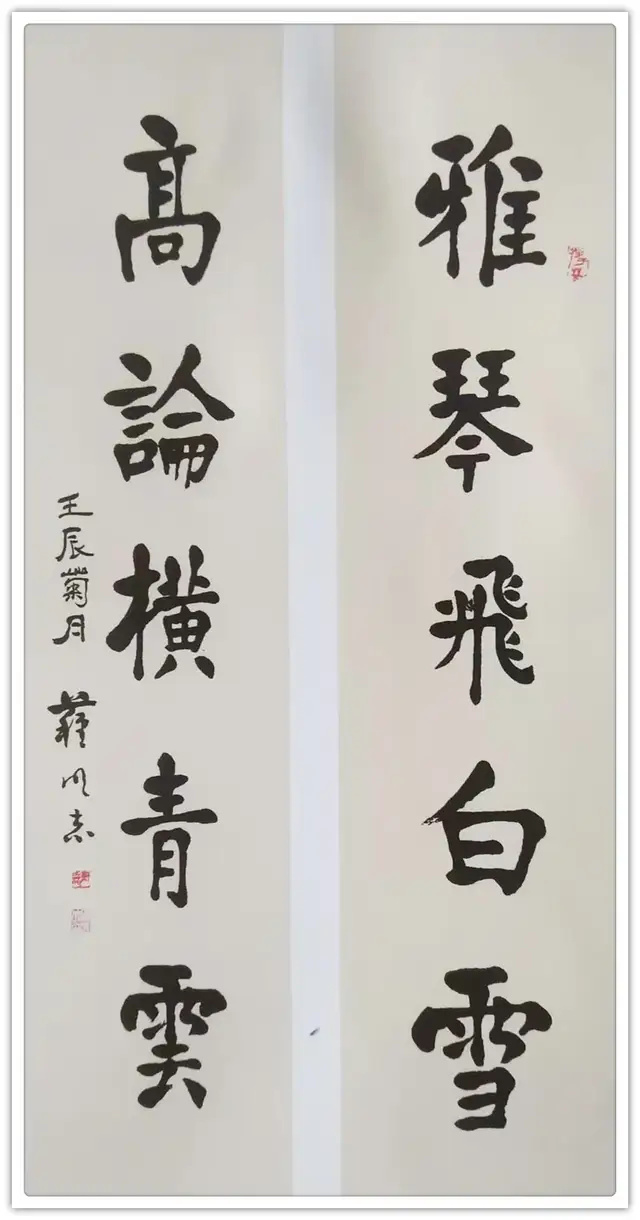 雅琴飛白雪
高論橫青雲
壬辰菊月